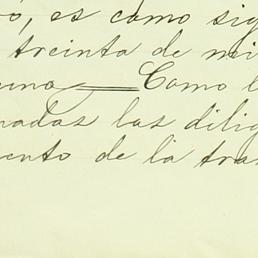 es como sig
treinta de mi
uno == Como l
nadas las dilig
ento de la tras